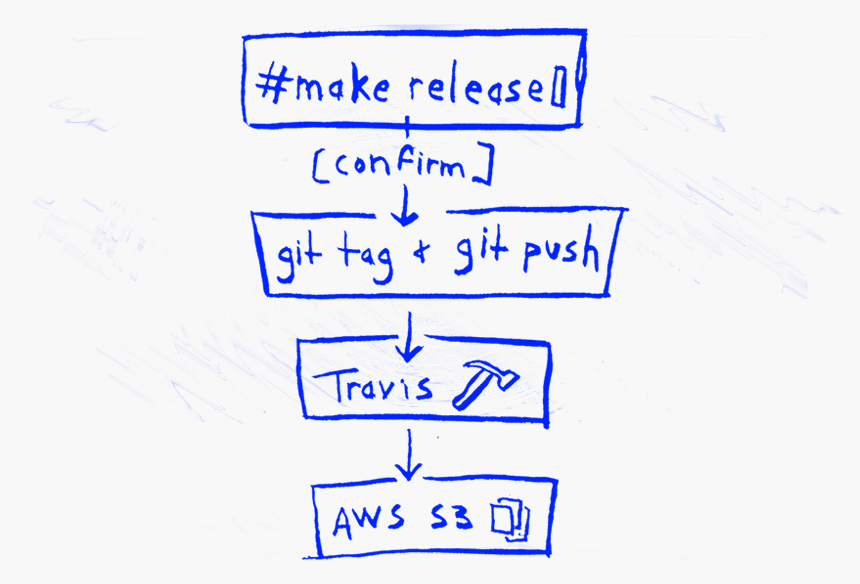 #make release
[confirm]
git tag & git push
Travis
AWS S3